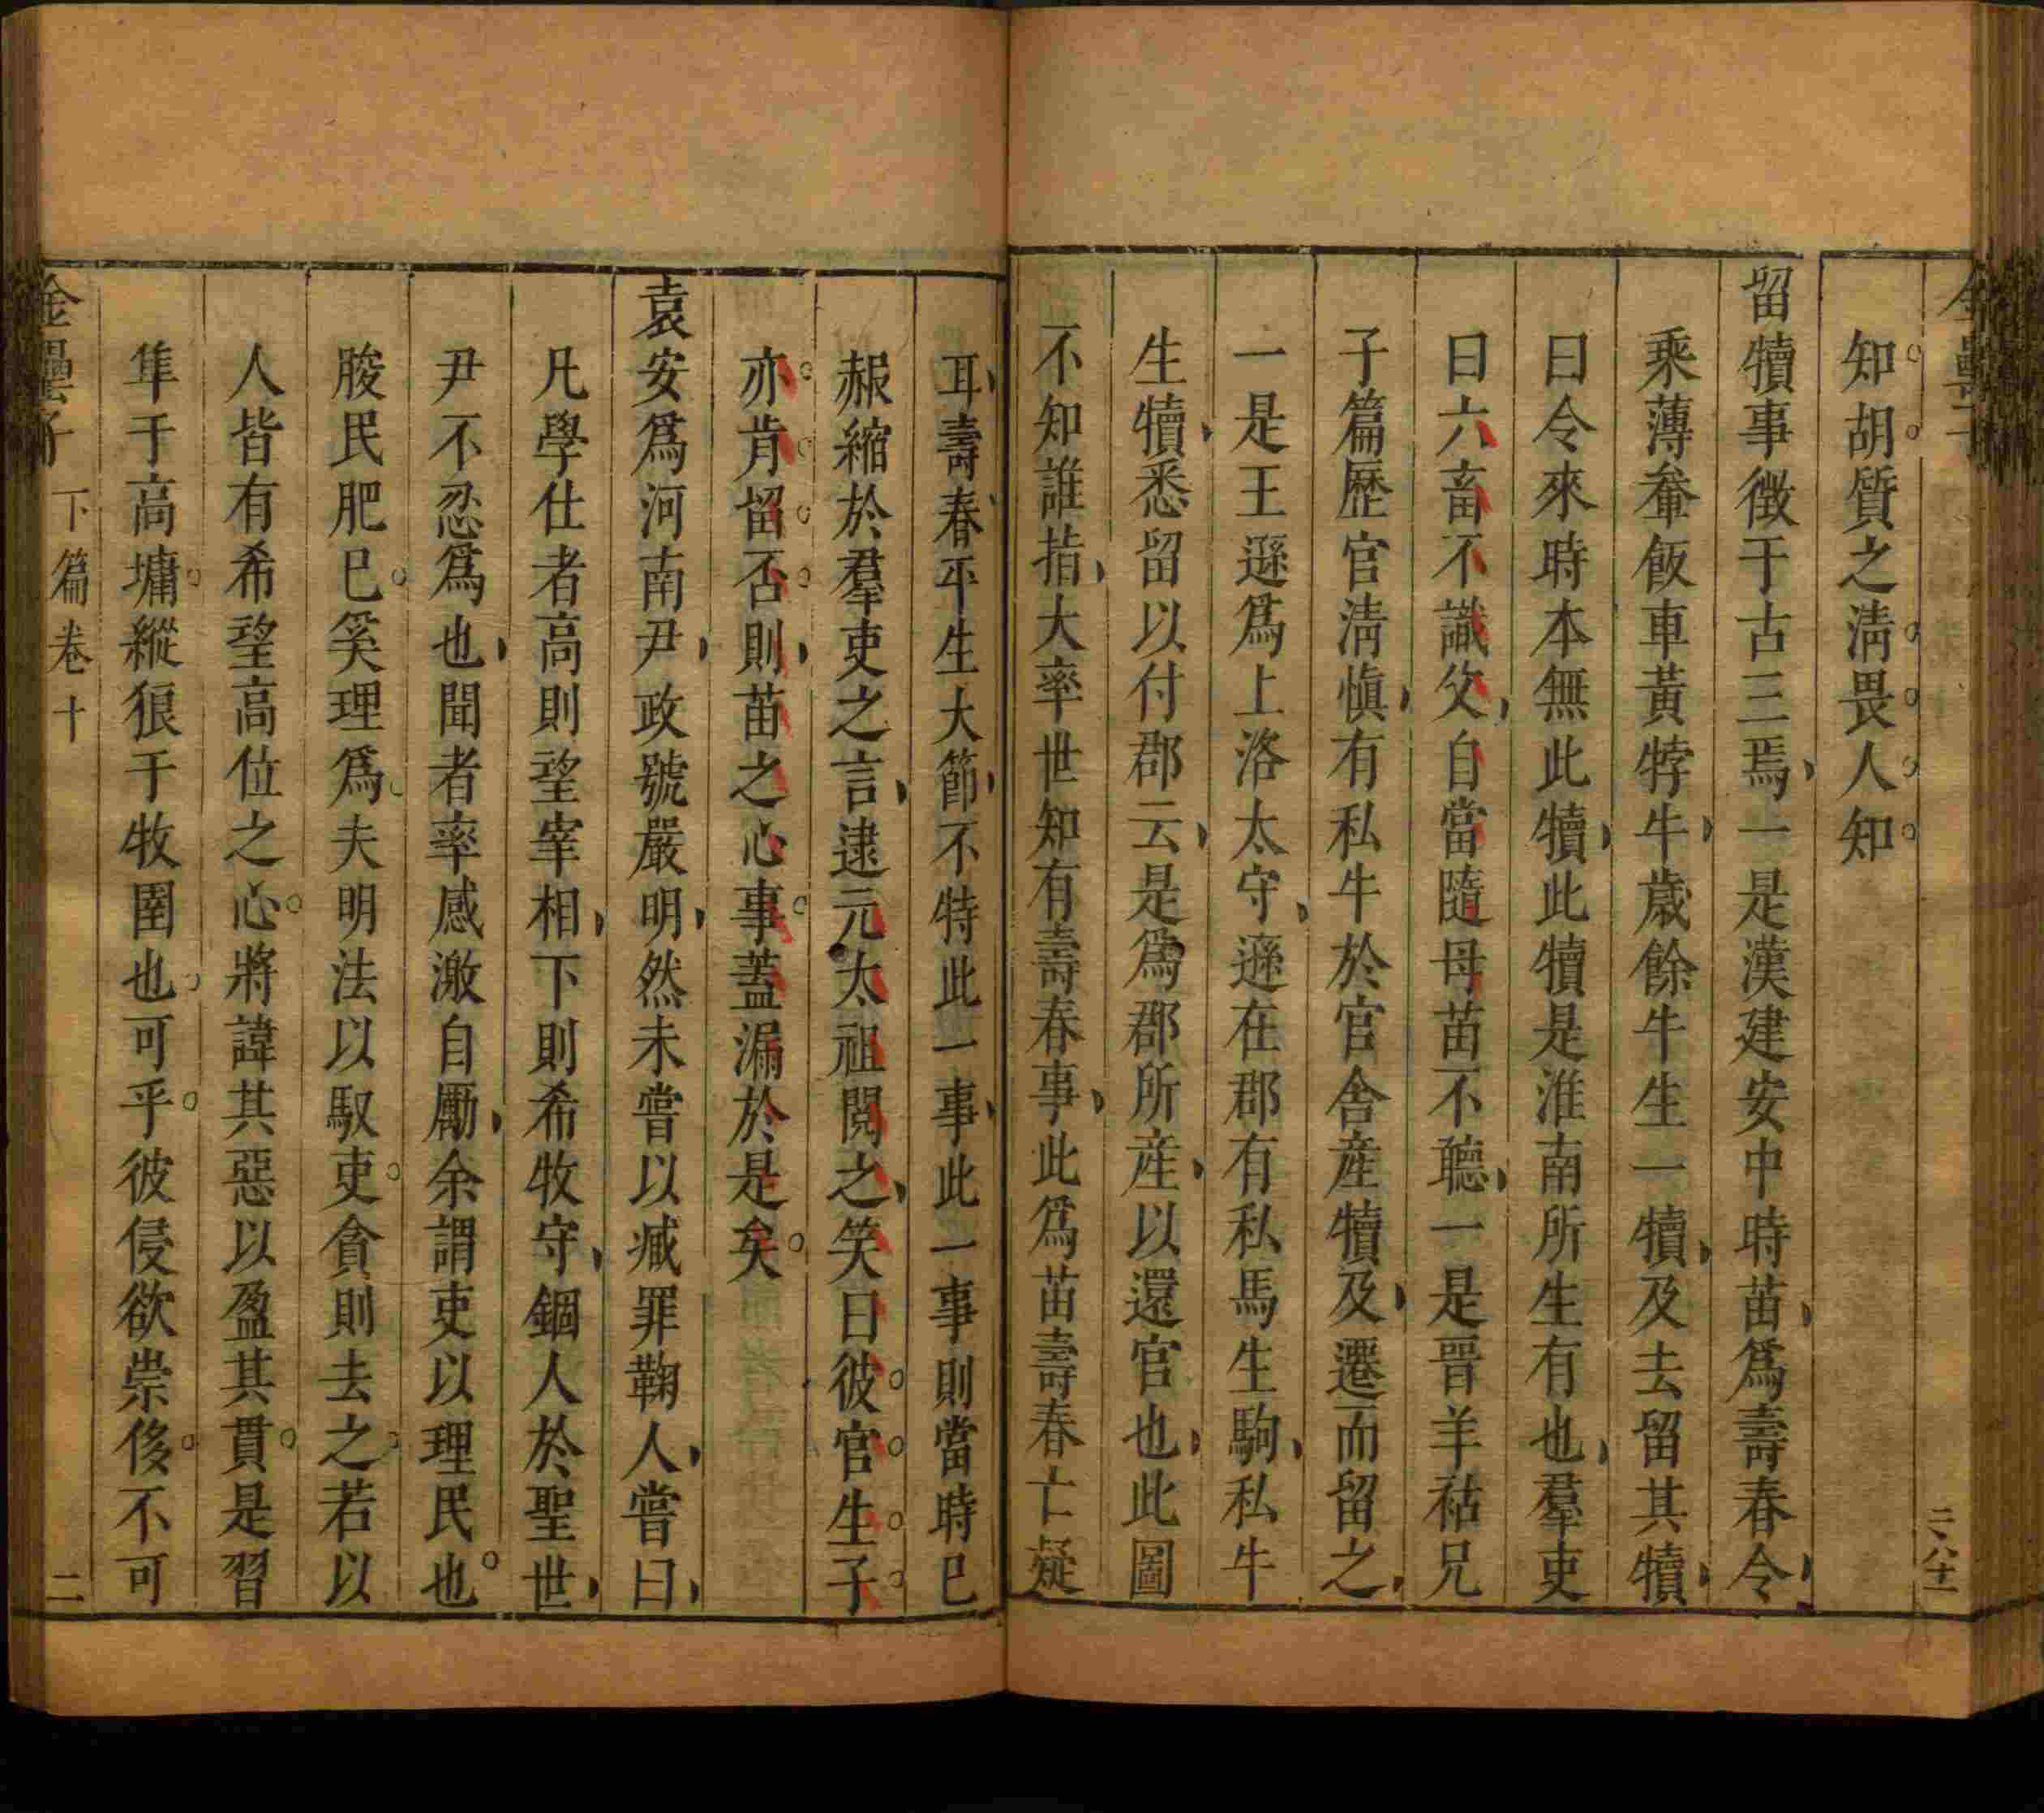 知胡質之清畏人知
留犢事徴于古三焉一是漢建安中時苗爲壽春令
乘薄軬飯車黃牸牛歲餘牛生一犢及去留其犢
曰令來時本無此犢此犢是淮南所生有也羣吏
曰六畜不識父自當隨母苗不聽一是晉羊祜兄
子篇歷官清愼有私牛於官舍產犢及遷而留之
一是王遜爲上洛太守遜在郡有私馬生駒私牛
生犢悉留以付郡云是爲郡所產以還官也此圖
不知誰指大率世知有壽春事此爲苗壽春亡疑
耳壽春平生大節不特此一事此一事則當時已
赧縮於羣吏之言逮元太祖閱之笑曰彼官生子
亦肯留否則苗之心事蓋漏於是矣
袁安爲河南尹政號嚴明然未嘗以臧罪鞠人嘗曰
凡學仕者高則望宰相下則希牧守錮人於聖世
尹不忍爲也聞者率感激自勵余謂吏以理民也
朘民肥已奚理爲夫明法以馭吏貪則去之若以
人皆有希望高位之心將諱其惡以盈其貫是習
隼于高墉縱狼于牧圉也可乎彼侵欲崇侈不可
金罍子 下篇卷十 二